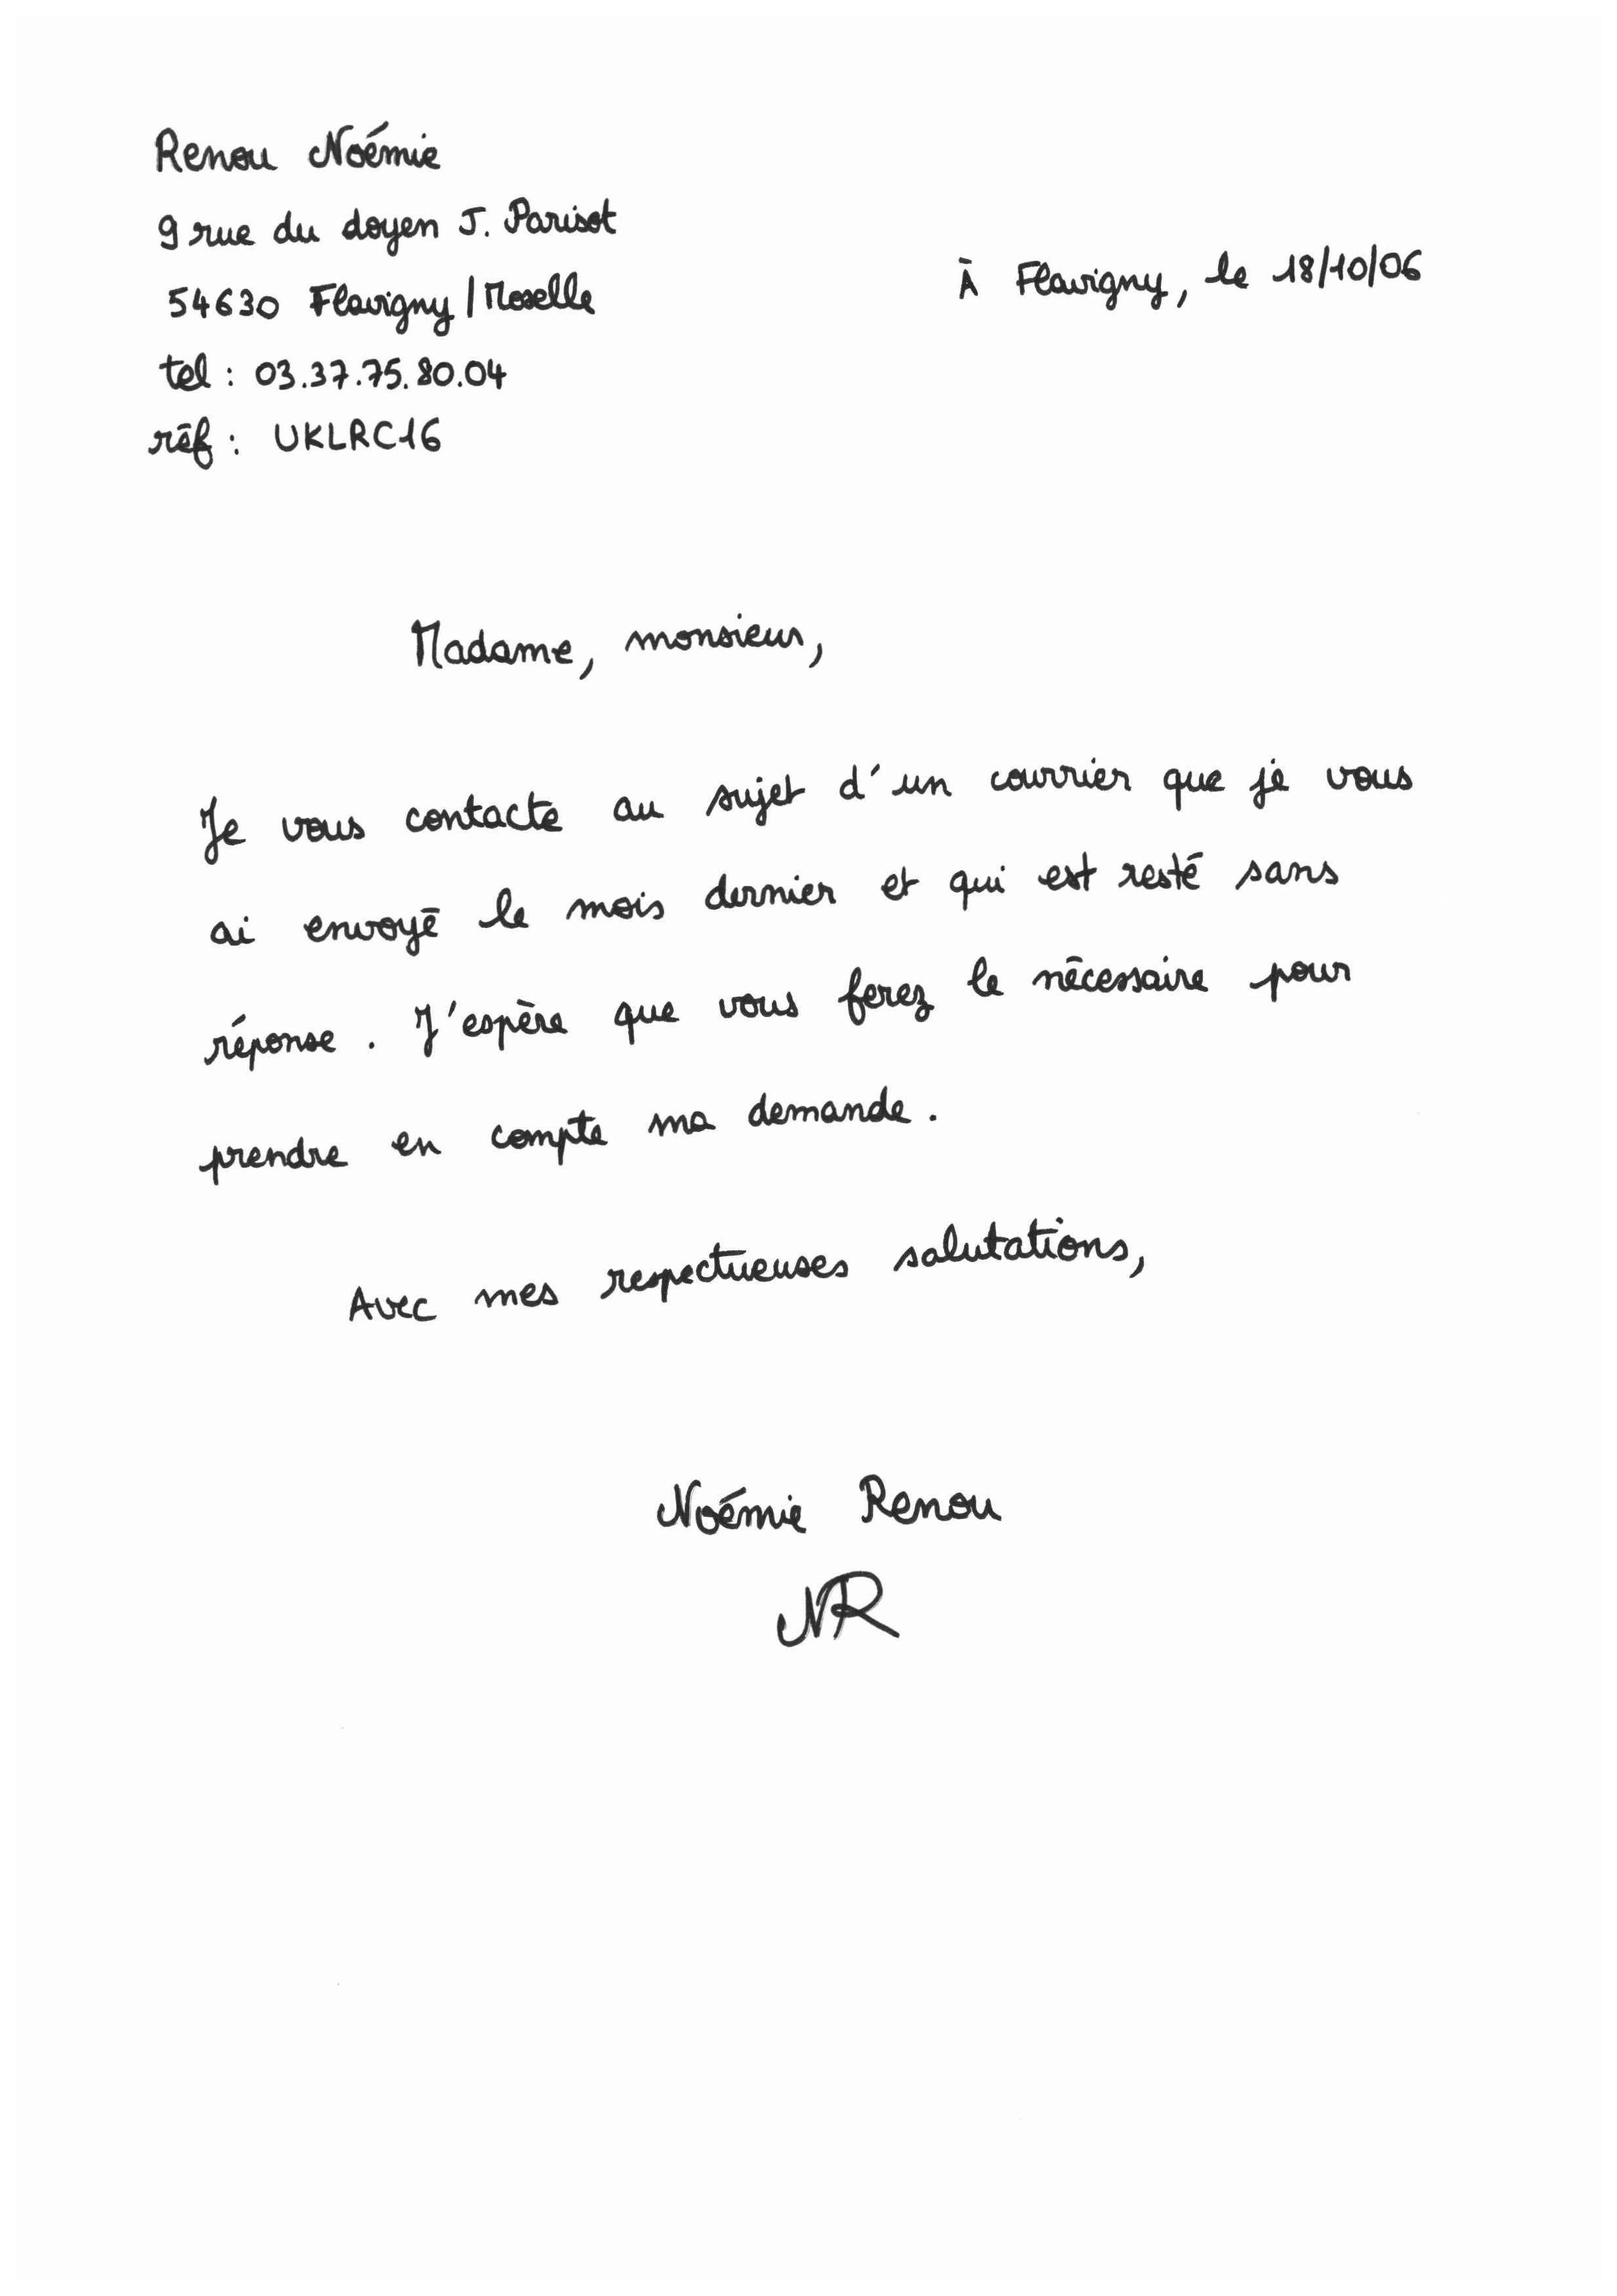 Renou Noémie
9 rue du doyen J. Parisot
54630 Flavigny / Moselle
À Flavigny, le 18/10/06
tel : 03.37.75.80.04
réf : UKLRC16
Madame, monsieur,
Je vous contacte au sujet d'un courrier que je vous
ai envoyé le mois dernier et qui est resté sans
réponse. J'espère que vous ferez le nécessaire pour
prendre en compte ma demande.
Avec mes respectueuses salutations,
Noémie Renou
NR